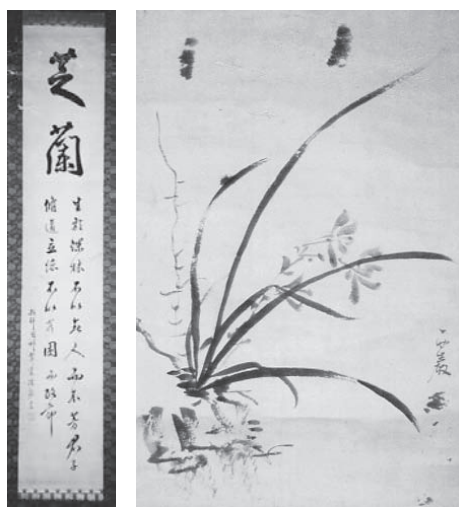 芝蘭
生於深林不以無人而不芳君子
脩道立德不以窮困而改節